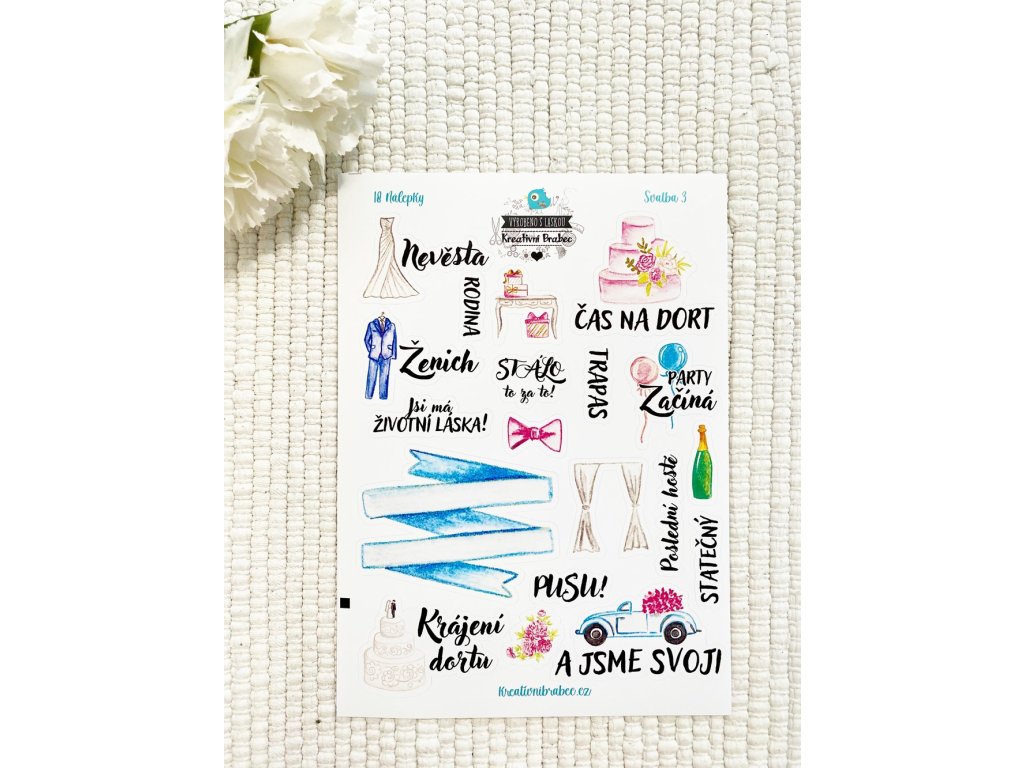 18 Nálepky
VYROBENO S LÁSKOU
Kreativní Brabec
Svatba 3
Nevěsta
RODINA
ČAS NA DORT
Ženich
STÁLO
to za to!
TRAPAS
PARTY
Začíná
Jsi má
ŽIVOTNÍ LÁSKA!
Poslední hosté
STATEČNÝ
PUSU!
Krájení
dortu
A JSME SVOJI
Kreativnibrabec.cz